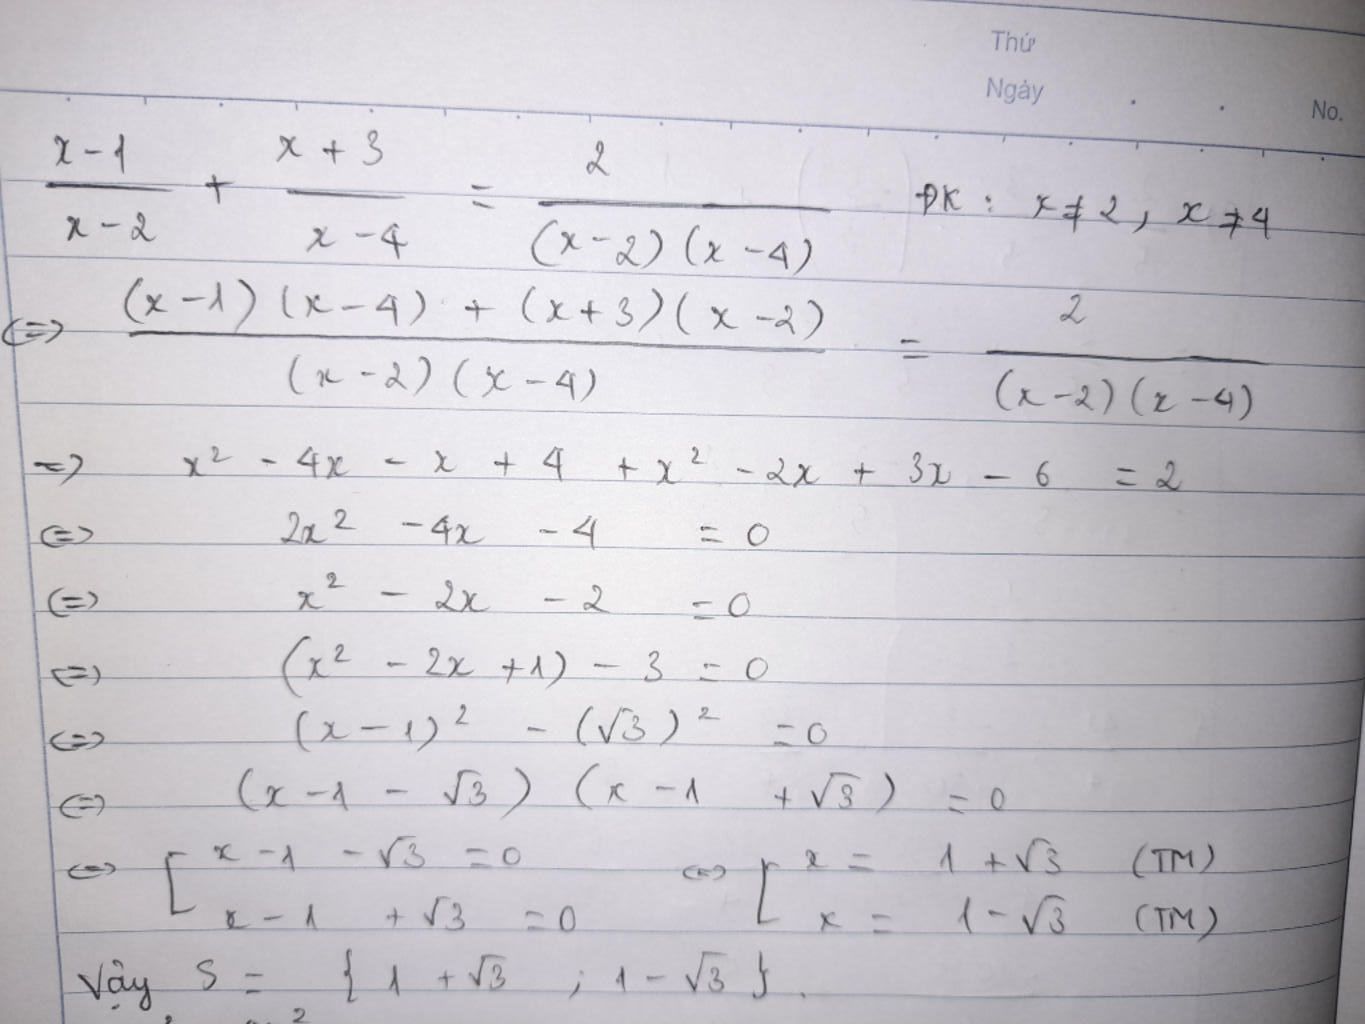 Thứ
Ngày
No.
(x-1)/(x-2) + (x+3)/(x-4) = 2/((x-2)(x-4)) ĐK: x≠2, x≠4
<=> ((x-1)(x-4) + (x+3)(x-2))/((x-2)(x-4)) = 2/((x-2)(x-4))
=> x² - 4x - x + 4 + x² - 2x + 3x - 6 = 2
<=> 2x² - 4x - 4 = 0
<=> x² - 2x - 2 = 0
<=> (x² - 2x + 1) - 3 = 0
<=> (x-1)² - (√3)² = 0
<=> (x-1-√3)(x-1+√3) = 0
<=> [ x-1-√3 = 0 <=> [ x = 1+√3 (TM)
x-1+√3 = 0 x = 1-√3 (TM)
Vậy S = {1+√3 ; 1-√3}.